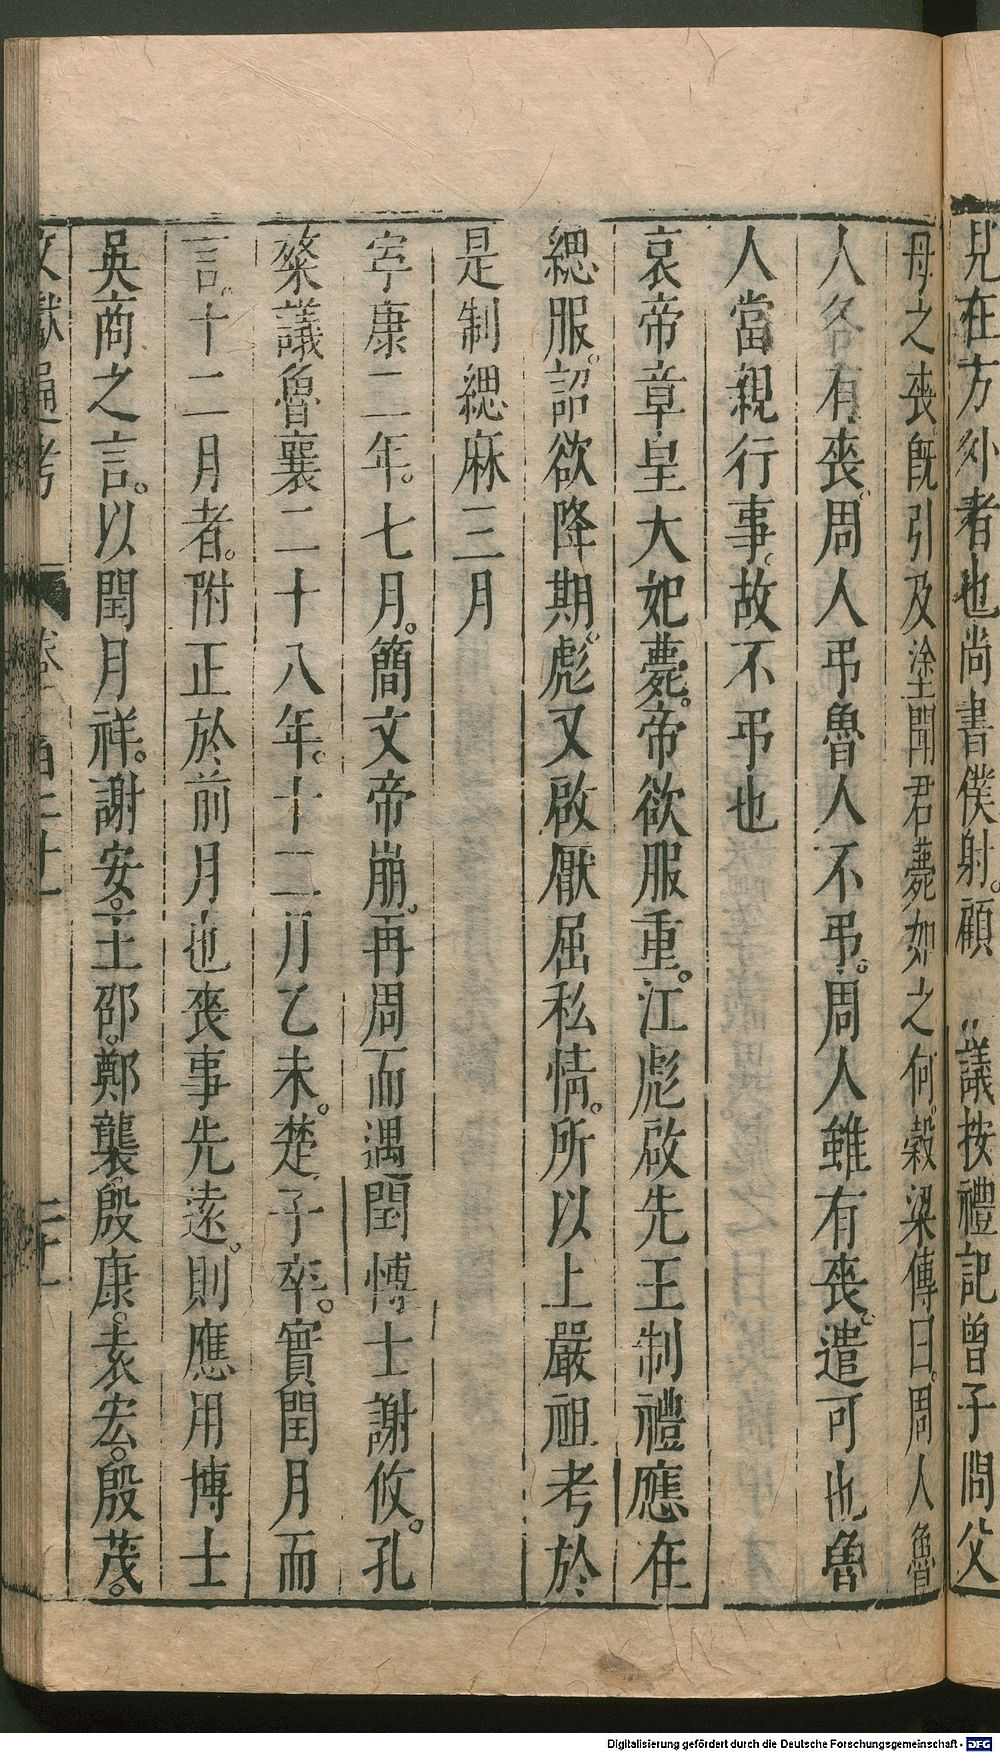 見在方外者也尚書僕射顧議按禮記曾子問父
母之喪旣引及塗聞君薨如之何穀梁傳曰周人魯
人各有喪周人弔魯人不弔周人雖有喪遣可也魯
人當親行事故不弔也
哀帝章皇大妃薨帝欲服重江彪啟先王制禮應在
緦服詔欲降期彪又啟厭屈私情所以上嚴祖考於
是制緦麻三月
寧康二年七月簡文帝崩再周而遇閏博士謝攸孔
粲議魯襄二十八年十二月乙未楚子卒實閏月而
言十二月者附正於前月也喪事先遠則應用博士
吳商之言以閏月祥謝安王邵鄭襲殷康袁宏殷茂
文獻通考 卷一百二十一 二十一
Digitalisierung gefördert durch die Deutsche Forschungsgemeinschaft - DFG